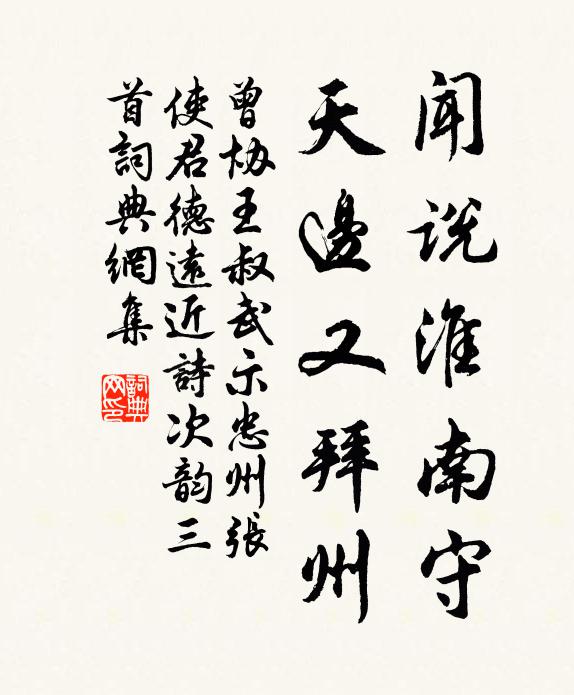 闻说淮南守
天邊又拜州
曾協王叔武示忠州張
使君德遠近詩次韵三
首詞典網集
詞典
网印